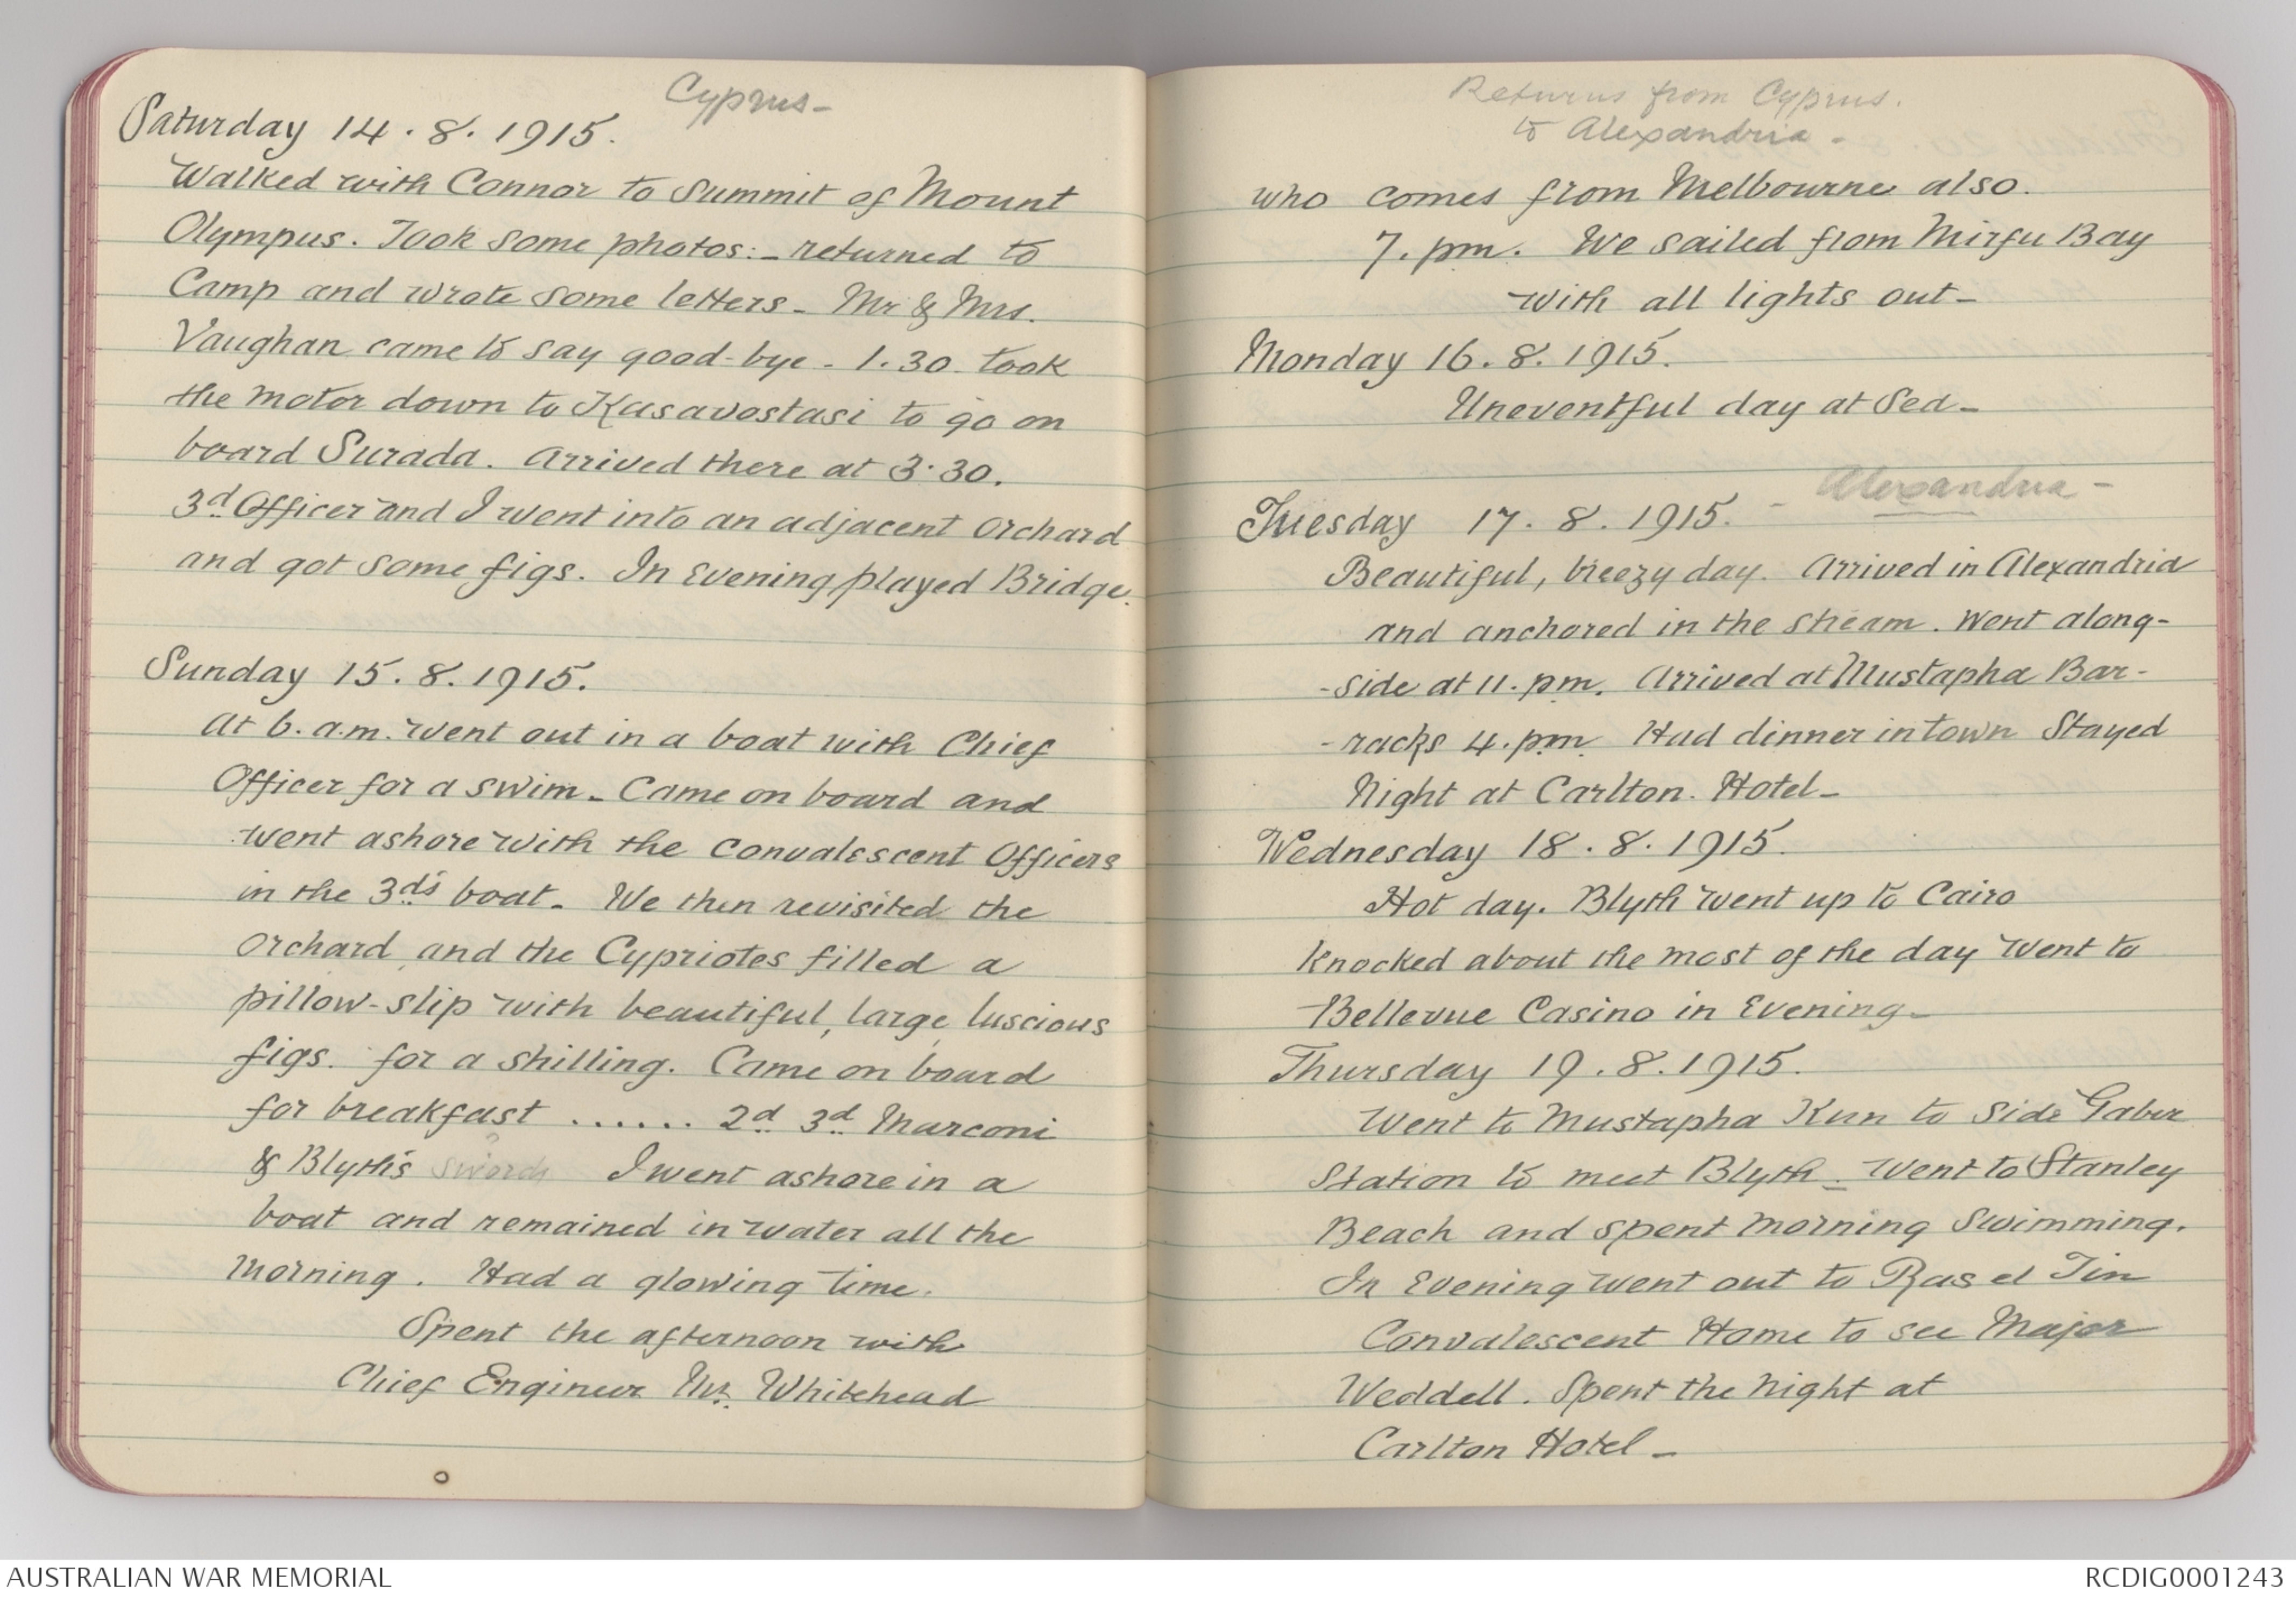 Cyprus-
Saturday 14.8.1915.
Walked with Connor to Summit of Mount
Olympus. Took some photos:- returned to
Camp and wrote some letters - Mr & Mrs.
Vaughan came to say good-bye - 1.30 took
the motor down to Kasavostasi to go on
board Surada. Arrived there at 3.30.
3d Officer and I went into an adjacent Orchard
and got some figs. In Evening played Bridge.
Sunday 15.8.1915.
At 6.a.m. went out in a boat with Chief
Officer for a swim - Came on board and
went ashore with the Convalescent Officers
in the 3d's boat - We then revisited the
Orchard, and the Cypriotes filled a
pillow-slip with beautiful, large, luscious
figs. for a shilling. Came on board
for breakfast ...... 2d 3d Marconi
& Blyth's I went ashore in a
boat and remained in water all the
Morning. Had a glowing time.
Spent the afternoon with
Chief Engineer Mr. Whitehead
Returns from Cyprus.
to Alexandria -
who comes from Melbourne also.
7.pm. We sailed from Mirfu Bay
with all lights out -
Monday 16.8.1915.
Uneventful day at Sea -
Tuesday 17.8.1915. - Alexandria -
Beautiful, breezy day. Arrived in Alexandria
and anchored in the stream. Went along-
-side at 11.pm. Arrived at Mustapha Bar-
-racks 4.pm. Had dinner in town Stayed
Night at Carlton. Hotel -
Wednesday 18.8.1915.
Hot day. Blyth went up to Cairo
knocked about the most of the day Went to
Bellevue Casino in Evening -
Thursday 19.8.1915.
Went to Mustapha Run to Side Gaber
Station to meet Blyth - Went to Stanley
Beach and spent morning Swimming.
In Evening went out to Ras el Tin
Convalescent Home to see Major
Weddell. Spent the Night at
Carlton Hotel -
AUSTRALIAN WAR MEMORIAL
RCDIG0001243